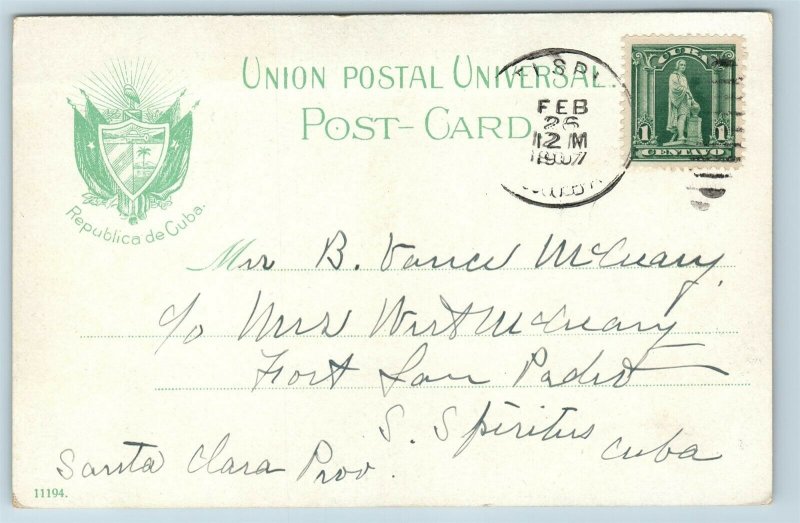 UNION POSTAL UNIVERSAL.
POST-CARD
FEB
26
12 M
1907
CUBA
1 1
CENTAVO
Republica de Cuba.
B. Vance McCleary
c/o Mrs Wirt McCleary
Fort San Pedro
S. Spiritus
Cuba
Santa Clara Prov.
11194.